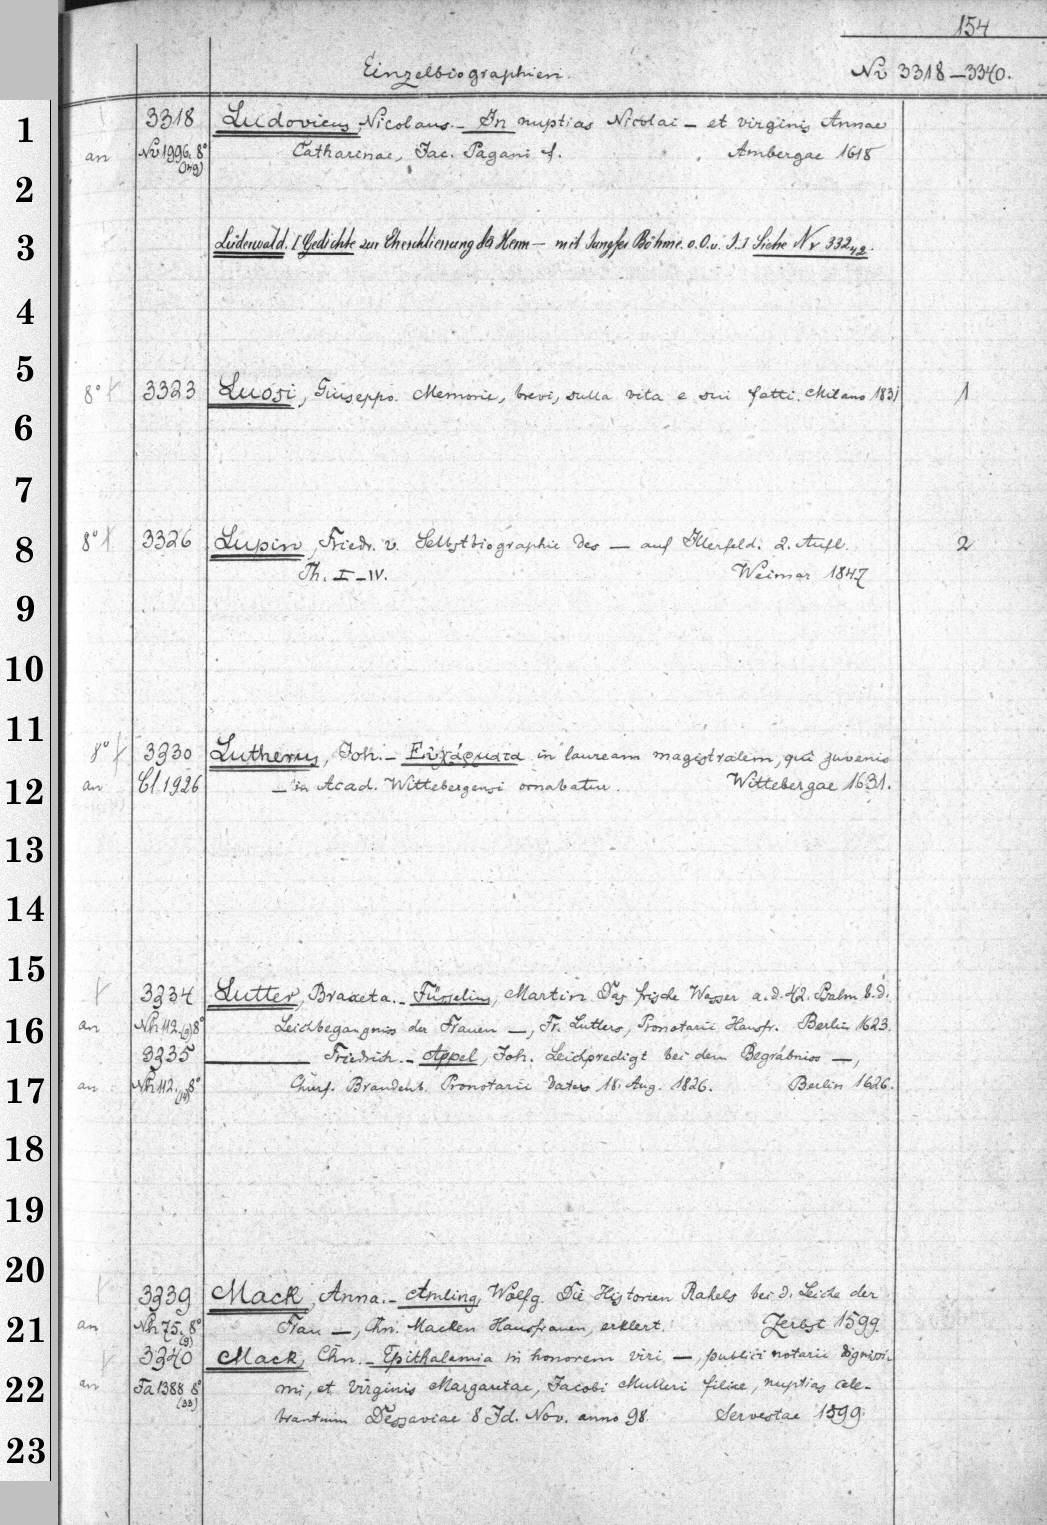 154
Einzelbiographien. Nv 3318—3340.
1 3318 Ludovicus, Nicolaus. — In nuptias Nicolai — et virginis Annae
an Nv 1996. 8° (49) Catharinae, Jac. Pagani f. Ambergae 1618
2
3 Lüderwald. [Gedichte zur Eheschliessung des Herrn — mit Jungfer Böhme. o.O.u. J.] Siehe Nr 33242.
4
5
8° 3323 Luosi, Giuseppo. Memorie, brevi, sulla vita e sui fatti. Milano 1831 1
6
7
8 8° 3326 Lupin, Friedr. v. Selbstbiographie des — auf Illerfeld. 2. Aufl. 2
Th. I—IV. Weimar 1847
9
10
11
8° 3330 Lutherus, Joh. — Εὐχάρματα in lauream magistralem, quî juvenis
12 an Cl 1926 — in Acad. Wittebergensi ornabatur. Wittebergae 1631.
13
14
15
3334 Lutter, Braxeta. — Füsselius, Martin. Das frische Wasser a. d. 42. Psalm b. d.
16 an Nh 112. (9) 8° Leichbegängnis der Frauen —, Fr. Lutters, Pronotarii Hausfr. Berlin 1623.
3335 Friedrich. — Appel, Joh. Leichpredigt bei dem Begräbniss —,
17 an Nh 112. 8° Churf. Brandenb. Pronotarii Vaters 18. Aug. 1826. Berlin 1626.
18
19
20
3339 Mack, Anna. — Amling, Wolfg. Die Historien Rahels bei d. Leiche der
21 an Nh 75. 8° (9) Frau —, Chn. Macken Hausfrauen, erklert. Zerbst 1599.
3340 Mack, Chn. — Epithalamia in honorem viri —, publici notarii dignissi-
22 an Ta 1388 8° (33) mi, et virginis Margaretae, Jacobi Mulleri filiae, nuptias cele-
brantium Dessaviae 8 Id. Nov. anno 98. Servestae 1599.
23